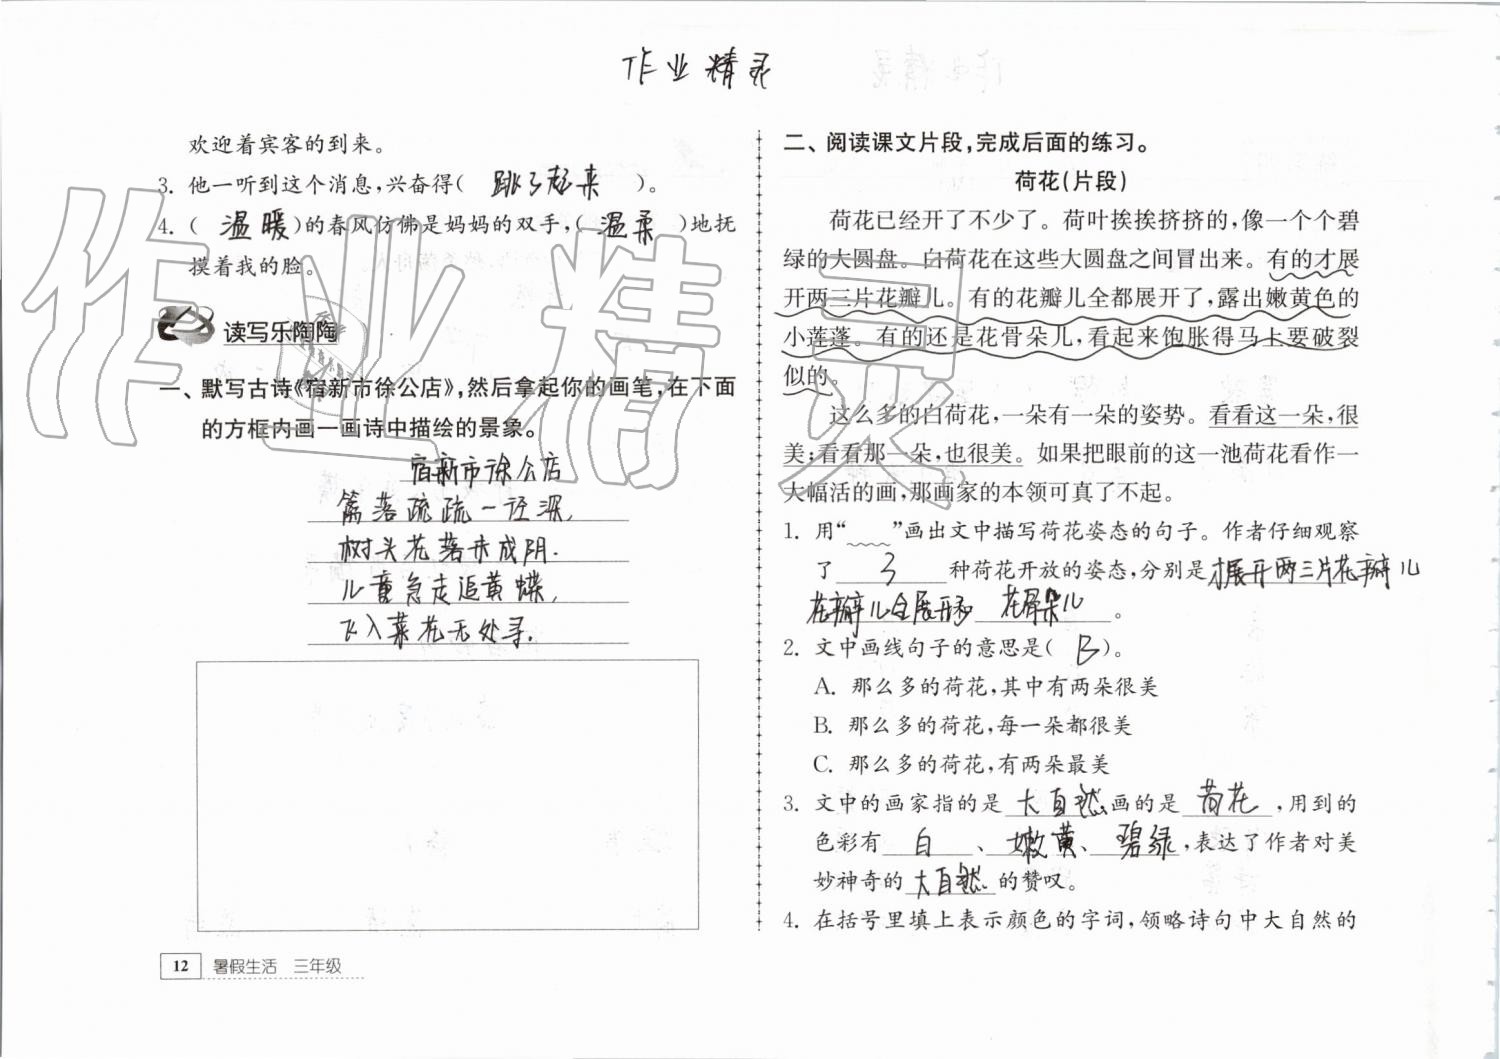 作业精灵
欢迎着宾客的到来。
3. 他一听到这个消息,兴奋得( 跳了起来 )。
4. ( 温暖 )的春风仿佛是妈妈的双手,( 温柔 )地抚
摸着我的脸。
读写乐陶陶
一、默写古诗《宿新市徐公店》,然后拿起你的画笔,在下面
的方框内画一画诗中描绘的景象。
宿新市徐公店
篱落疏疏一径深,
树头花落未成阴.
儿童急走追黄蝶,
飞入菜花无处寻.
12 暑假生活 三年级
二、阅读课文片段,完成后面的练习。
荷花(片段)
荷花已经开了不少了。荷叶挨挨挤挤的,像一个个碧
绿的大圆盘。白荷花在这些大圆盘之间冒出来。有的才展
开两三片花瓣儿。有的花瓣儿全都展开了,露出嫩黄色的
小莲蓬。有的还是花骨朵儿,看起来饱胀得马上要破裂
似的。
这么多的白荷花,一朵有一朵的姿势。看看这一朵,很
美;看看那一朵,也很美。如果把眼前的这一池荷花看作一
大幅活的画,那画家的本领可真了不起。
1. 用“ ”画出文中描写荷花姿态的句子。作者仔细观察
了 3 种荷花开放的姿态,分别是 才展开两三片花瓣儿
花瓣儿全展开 花骨朵儿 。
2. 文中画线句子的意思是( B )。
A. 那么多的荷花,其中有两朵很美
B. 那么多的荷花,每一朵都很美
C. 那么多的荷花,有两朵最美
3. 文中的画家指的是 大自然 画的是 荷花 ,用到的
色彩有 白 、嫩黄、碧绿,表达了作者对美
妙神奇的 大自然 的赞叹。
4. 在括号里填上表示颜色的字词,领略诗句中大自然的
作业精灵